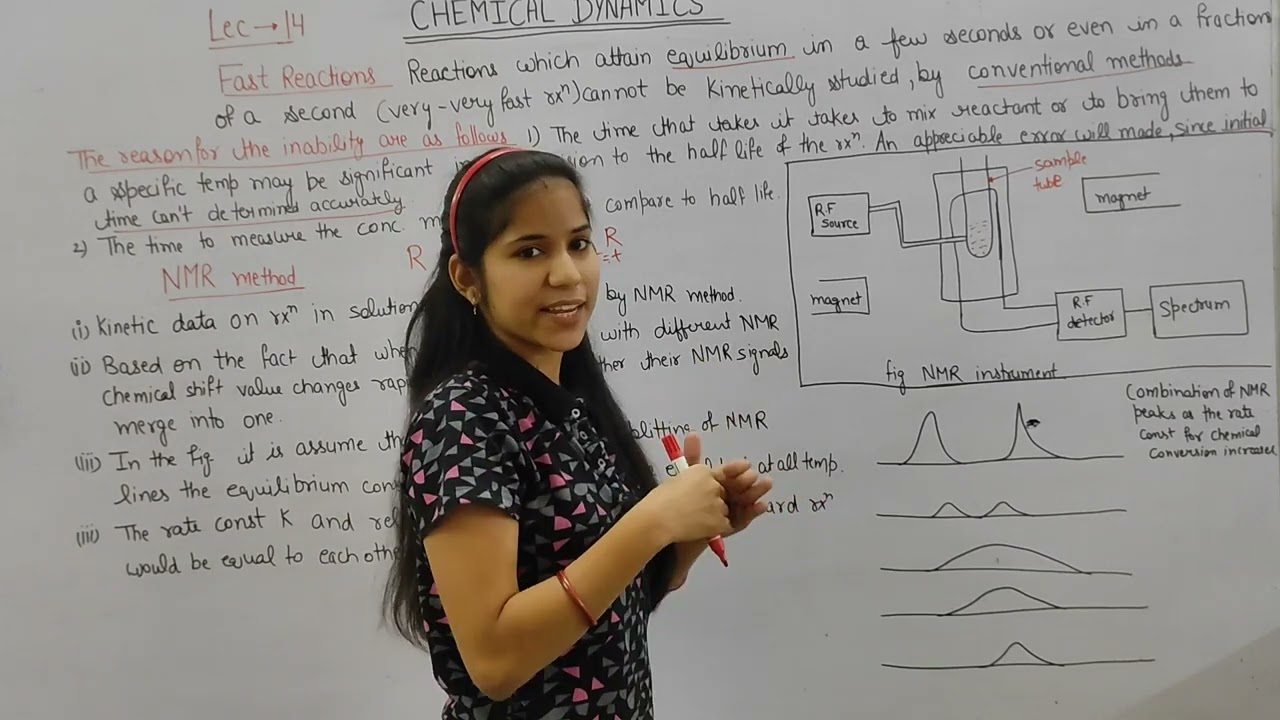 CHEMICAL DYNAMICS
Lec → 14
Fast Reactions Reactions which attain equilibrium in a few seconds or even in a fraction
of a second (very-very fast rxⁿ) cannot be kinetically studied, by conventional methods
The reason for the inability are as follows 1) The time that takes it takes to mix reactant or to bring them to
a specific temp may be significant in sion to the half life of the rxⁿ. An appreciable error will made, since initial
time can't determined accurately.
2) The time to measure the conc. compare to half life.
R R
=+
NMR method
(i) Kinetic data on rxⁿ in solution by NMR method.
(ii) Based on the fact that when with different NMR
chemical shift value changes rap her their NMR signals
merge into one.
(iii) In the fig it is assume th plitting of NMR
lines the equilibrium con at all temp.
(iii) The rate const K and rel ard rxⁿ
would be equal to each othe
sample
tube
R.F
source
magnet
magnet
R.F
detector
Spectrum
fig NMR instrument
Combination of NMR
peaks as the rate
const for chemical
conversion increases